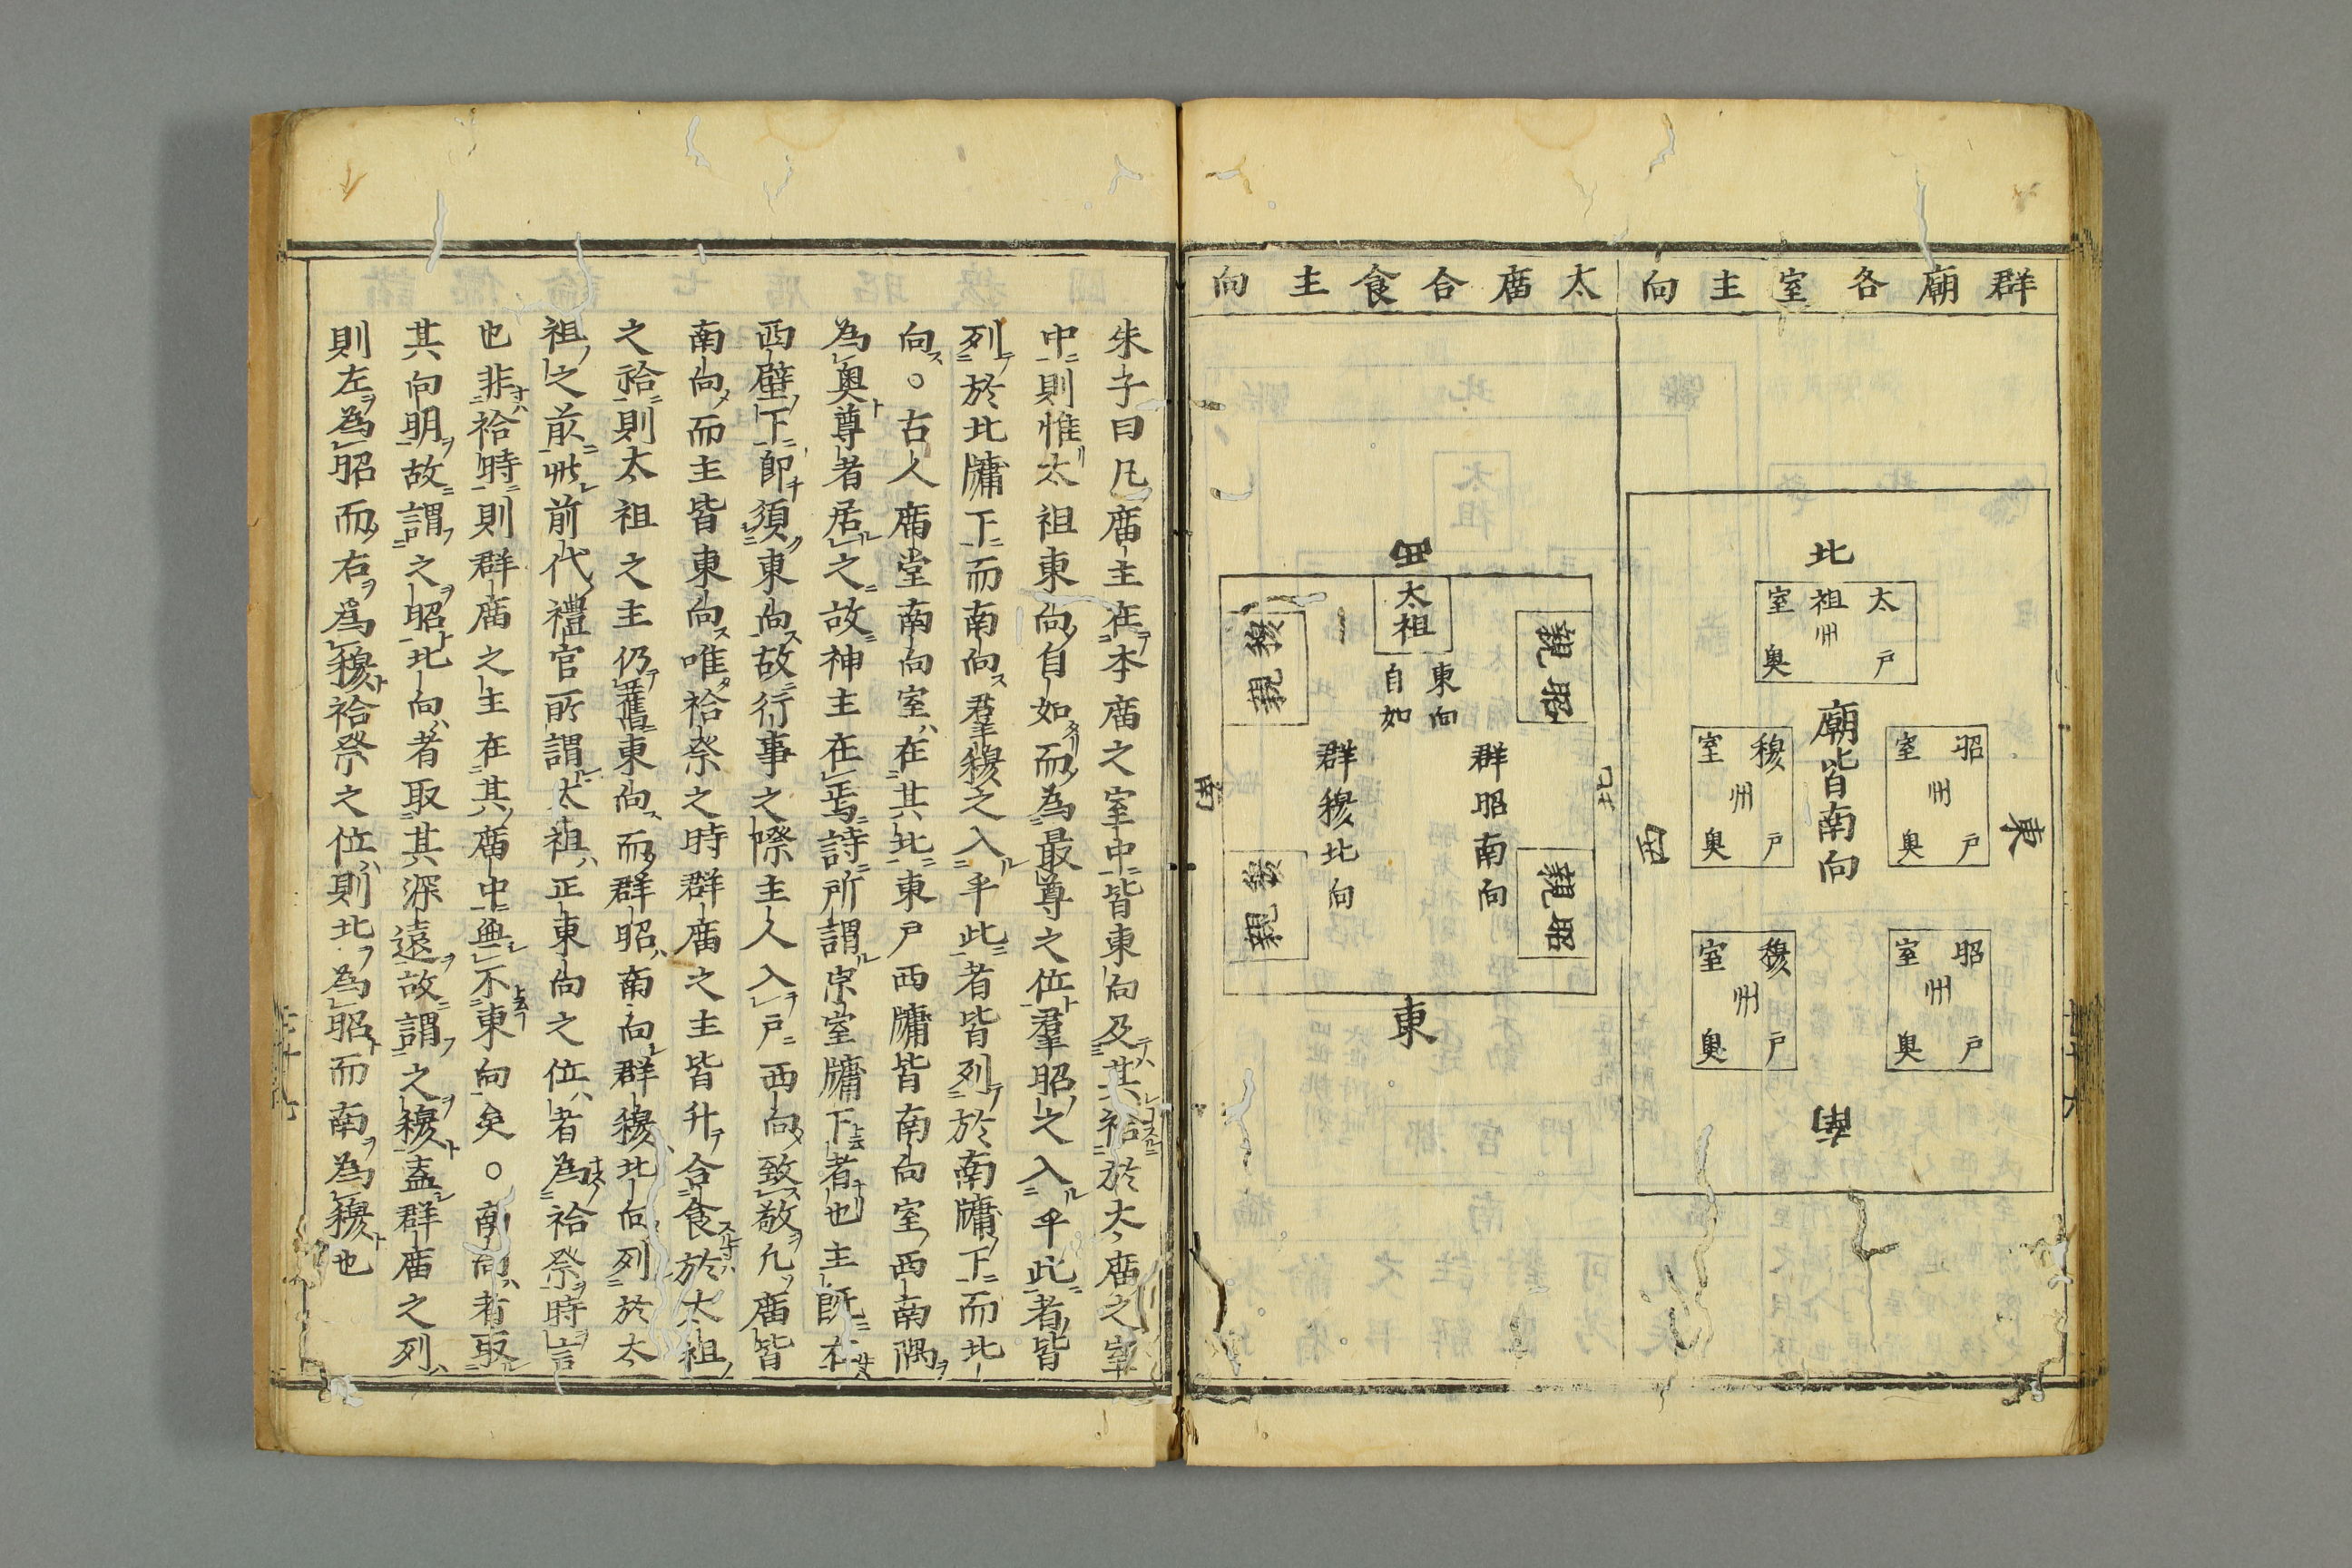 群廟各室主向
太庿合食主向
北
太祖室
主
戶
奧
廟皆南向
昭室
主
戶
奧
穆室
主
戶
奧
東
西
昭室
主
戶
奧
穆室
主
戶
奧
南
西
太祖
東向
自如
昭親
穆親
群昭南向
群穆北向
北
南
昭親
穆親
東
朱子曰凡庿主在本庿之室中皆東向及其祫於太庿之室
中則惟太祖東向自如而為最尊之位羣昭之入乎此者皆
列於北牗下而南向羣穆之入乎此者皆列於南牗下而北
向○古人庿堂南向室在其北東戶西牗皆南向室西南隅
為奧尊者居之故神主在焉詩所謂宗室牗下者也主既在
西壁下即須東向故行事之際主人入戶西向致敬凡庿皆
南向而主皆東向唯祫祭之時群庿之主皆升合食於太祖
之祫則太祖之主仍舊東向而群昭南向群穆北向列於太
祖之前此前代禮官所謂太祖正東向之位者為祫祭時言
也非祫時則群庿之主在其庿中無不東向矣○南向者取
其向明故謂之昭北向者取其深遠故謂之穆蓋群庿之列
則左為昭而右為穆祫祭之位則北為昭而南為穆也